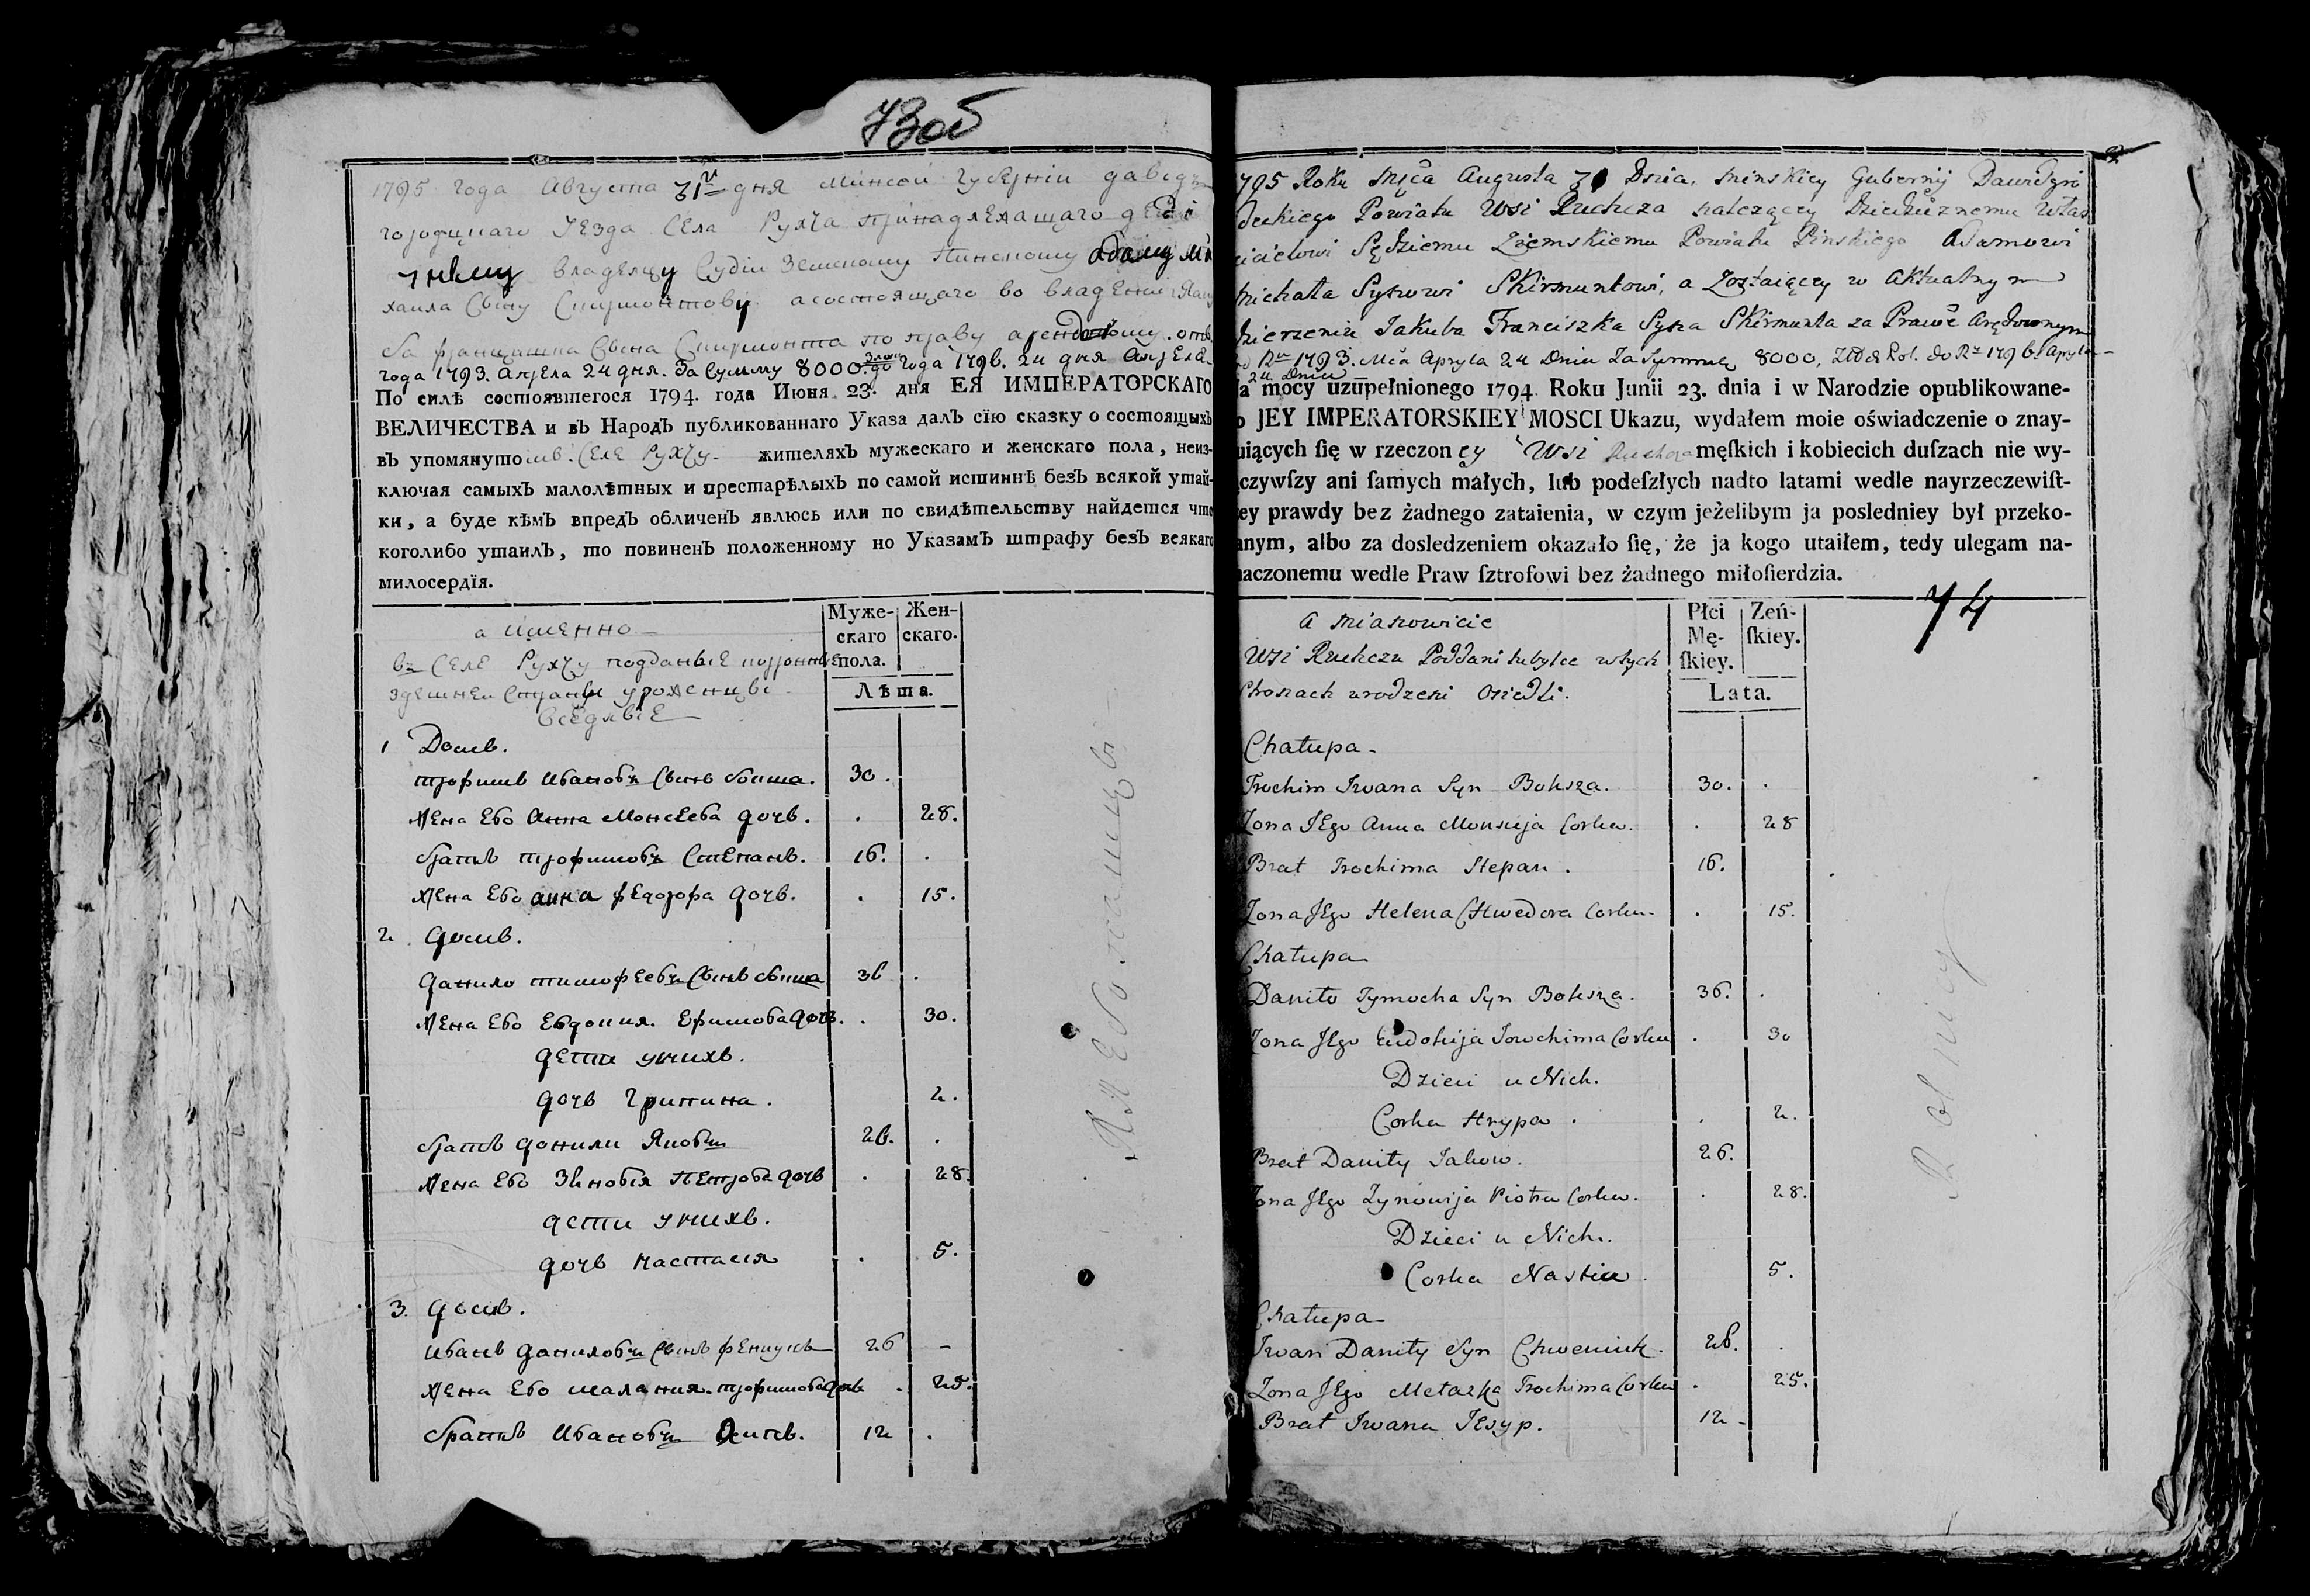 73об
1795 года Августа 31 дня Минской Губернiи Давидъ
городцкаго уезда села Рухча принадлежащаго деди
чному владелцу Судiи Земскому Пинскому Адаму Ми
хаила Сыну Скирмонтови. а состоящаго во владении Яку
ба Францишка Сына Скирмонта по праву арендовному. отъ
года 1793. Апреля 24 дня. За сумму 8000. злот до года 1796. 24 дня Апреля
По силѣ состоявшегося 1794. года Июня 23. дня ЕЯ ИМПЕРАТОРСКАГО
ВЕЛИЧЕСТВА и въ Народѣ публикованнаго Указа далъ сїю сказку о состоящыхъ
въ упомянутомъ. Селе Рухчу. жителяхъ мужескаго и женскаго пола, неиз-
ключая самыхъ малолѣтныхъ и престарѣлыхъ по самой истиннѣ безъ всякой утай-
ки, а буде кѣмъ впредь обличенъ явлюсь или по свидѣтельству найдется что
коголибо утаилъ, то повиненъ положенному по Указамъ штрафу безъ всякаго
милосердїя.
а именно
Муже-
скаго
пола.
Жен-
скаго.
Лѣта.
въ Селе Рухчу подданые коронные
здешней страны уроженцы
оседлые
1 Домъ.
Трофимъ Ивановъ Сынъ Бокша. 30.
Жена Ево Анна Монсеева дочь. . 28.
братъ Трофимовъ Степанъ. 16. .
Жена Ево Анна Федора дочь. . 15.
2. домъ.
Данило Тимофеевъ Сынъ Бокша 36 .
Жена Ево Евдокия. Ефимова дочь. . 30.
дети у нихъ.
дочь Грипина. 2.
братъ Данили Яковъ 26. .
Жена Ево Зиновiя Петрова дочь . 28.
дети у нихъ.
дочь Настасия . 5.
3. домъ.
Иванъ Даниловъ Сынъ Фениукъ 26 -
Жена Ево Малания. Трофимова дочь . 25.
братъ Ивановъ Осипъ. 12 .
795 Roku Mca Augusta 31 Dnia, Minskiey Gubernij Dawidgro
deckiego Powiatu Wsi Ruchcza należący Dziedzicznemu Właś
cicielowi Sędziemu Ziemskiemu Powiatu Pinskiego Adamowi
Michała Synowi Skirmuntowi, a Zostaiący w aktualnym
dzierzeniu Jakuba Franciszka Syna Skirmunta za Prawe Arędownym
od Ru 1793. Mca Apryla 24 Dnia Za Summę 8000, Złł Pol. do Ru 1796 Apryla
24 Dnia
a mocy uzupełnionego 1794 Roku Junii 23. dnia i w Narodzie opublikowane-
o JEY IMPERATORSKIEY MOSCI Ukazu, wydałem moie oświadczenie o znay-
uiących ſię w rzeczoney Wsi Ruchcza męſkich i kobiecich duſzach nie wy-
czywſzy ani ſamych małych, lub podeſzłych nadto latami wedle nayrzeczewiſt-
ey prawdy bez żadnego zataienia, w czym jeżelibym ja posledniey był przeko-
anym, albo za dosledzeniem okazało ſię, że ja kogo utaiłem, tedy ulegam na-
naczonemu wedle Praw ſztrofowi bez żadnego miłoſierdzia.
74
a Mianowicie
Płci
Mę-
ſkiey.
Zeń-
ſkiey.
Lata.
Wsi Ruchcza Poddani tubylce wtych
Stronach urodzeni Osiedli.
Chałupa
Trochim Iwana Syn Boksza. 30. .
Zona Jego Anna Monsieja Corka. . 28
Brat Trochima Stepan. 16.
Zona Jego Helena Chwedora Corka. . 15.
Chałupa
Daniło Tymocha Syn Boksza. 36. .
Zona Jego Eudokija Jowchima Corka . 30
Dzieci u Nich.
Corka Hrypa. . 2.
Brat Daniły Jakow. 26.
Zona Jego Zynowija Piotra Corka. . 28.
Dzieci u Nich.
Corka Nastia. 5.
Chałupa
Iwan Daniły Syn Chweniuk. 26. .
Zona Jego Małaszka Trochima Corka . 25.
Brat Iwana Jesyp. 12 -